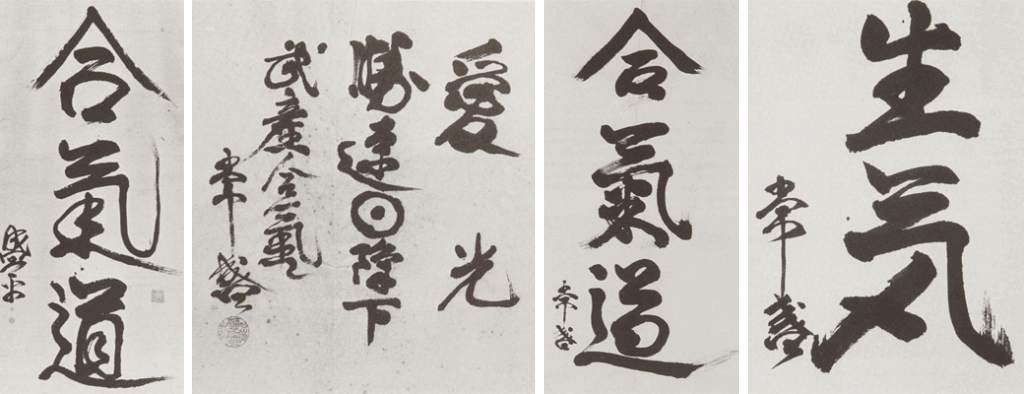 合氣道
盛平
愛光
勝速⊙降下
武産合氣
常盛
合氣道
常盛
生気
常盛